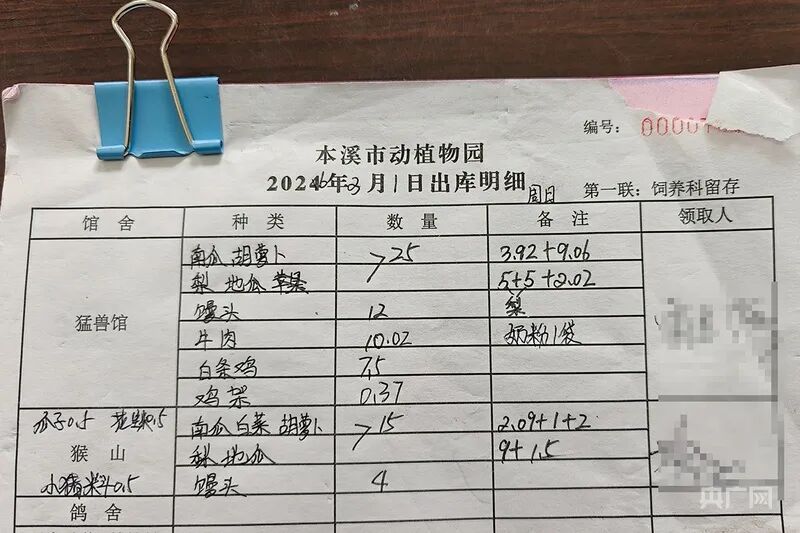 编号： 0000
本溪市动植物园
2026年3月1日出库明细 周日 第一联：饲养科留存
馆舍 种类 数量 备注 领取人
南瓜 胡萝卜 >25 3.92+9.06
梨 地瓜 苹果 5+5+2.02
馒头 12 梨
猛兽馆 牛肉 10.02 奶粉1袋
白条鸡 7.5
鸡架 0.37
瓜子0.5 0.5 南瓜 白菜 胡萝卜 >15 2.09+1+2
猴山 梨 地瓜 9+1.5
小猪料0.5 馒头 4
鸽舍
央广网